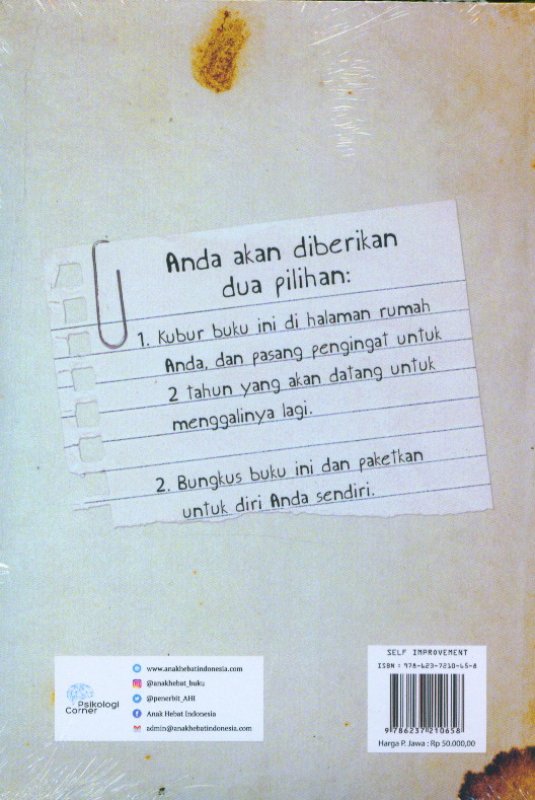 Anda akan diberikan
dua pilihan:
1. Kubur buku ini di halaman rumah
Anda, dan pasang pengingat untuk
2 tahun yang akan datang untuk
menggalinya lagi.
2. Bungkus buku ini dan paketkan
untuk diri Anda sendiri.
Psikologi
Corner
www.anakhebatindonesia.com
@anakhebat_buku
@penerbit_AHI
Anak Hebat Indonesia
admin@anakhebatindonesia.com
SELF IMPROVEMENT
ISBN : 978-623-7210-65-8
9 786237 210658
Harga P. Jawa : Rp 50.000,00